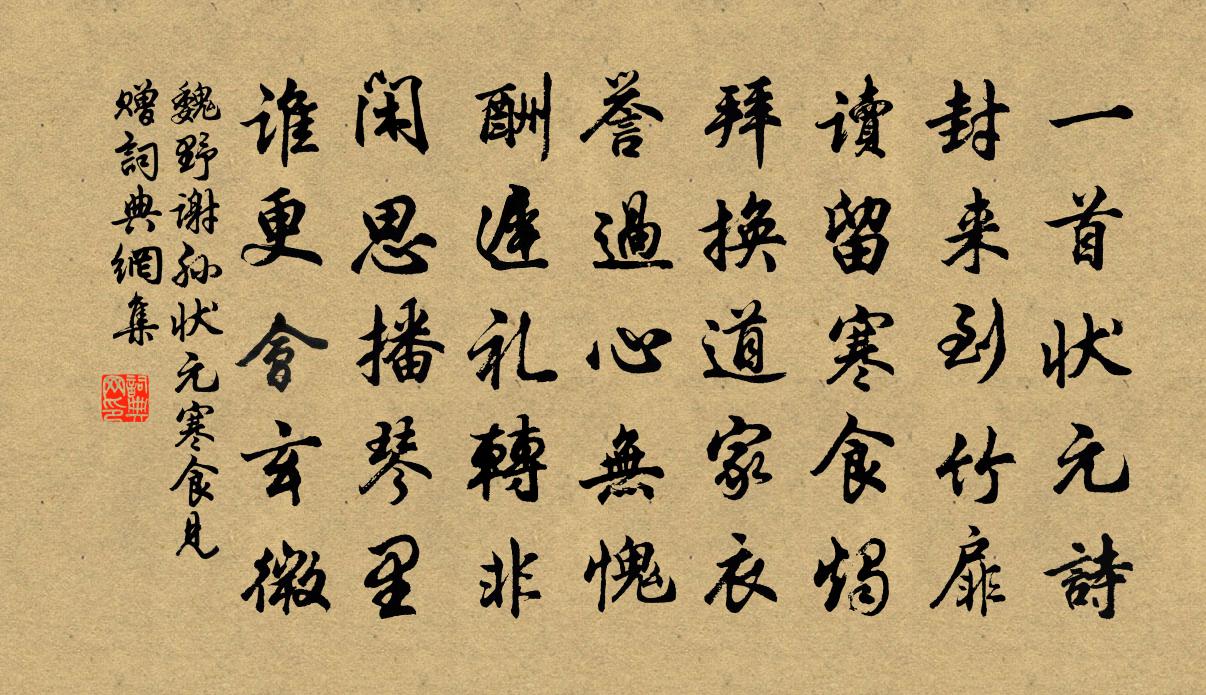 一首状元詩
封来到竹扉
讀留寒食燭
拜換道家衣
誉過心無愧
酬遲礼轉非
閑思播琴里
誰更會玄微
魏野谢孙状元寒食見
赠詞典網集
詞典
网印